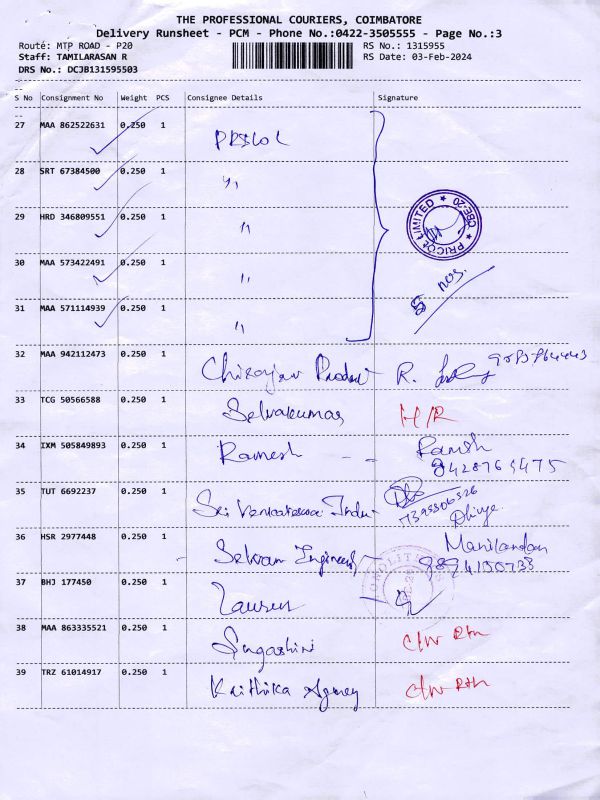 THE PROFESSIONAL COURIERS, COIMBATORE
Delivery Runsheet - PCM - Phone No.:0422-3505555 - Page No.:3
Route: MTP ROAD - P20 RS No.: 1315955
Staff: TAMILARASAN R RS Date: 03-Feb-2024
DRS No.: DCJB131595503
S No Consignment No Weight PCS Consignee Details Signature
27 MAA 862522631 0.250 1 PRICOL
28 SRT 67384500 0.250 1 "
29 HRD 346809551 0.250 1 "
PRICOL LIMITED
30 MAA 573422491 0.250 1 "
5 nos.
31 MAA 571114939 0.250 1 "
32 MAA 942112473 0.250 1 R.
33 TCG 50566588 0.250 1 Selvakumar H/R
34 IXM 505849893 0.250 1 Ramesh - - Ramesh
35 TUT 6692237 0.250 1 Sri Venkateswa Indu
Dhivya
36 HSR 2977448 0.250 1 Selvam Engineers Manikandan
37 BHJ 177450 0.250 1
38 MAA 863335521 0.250 1 C/W Rtn
39 TRZ 61014917 0.250 1 Karthika Agency C/W Rtn